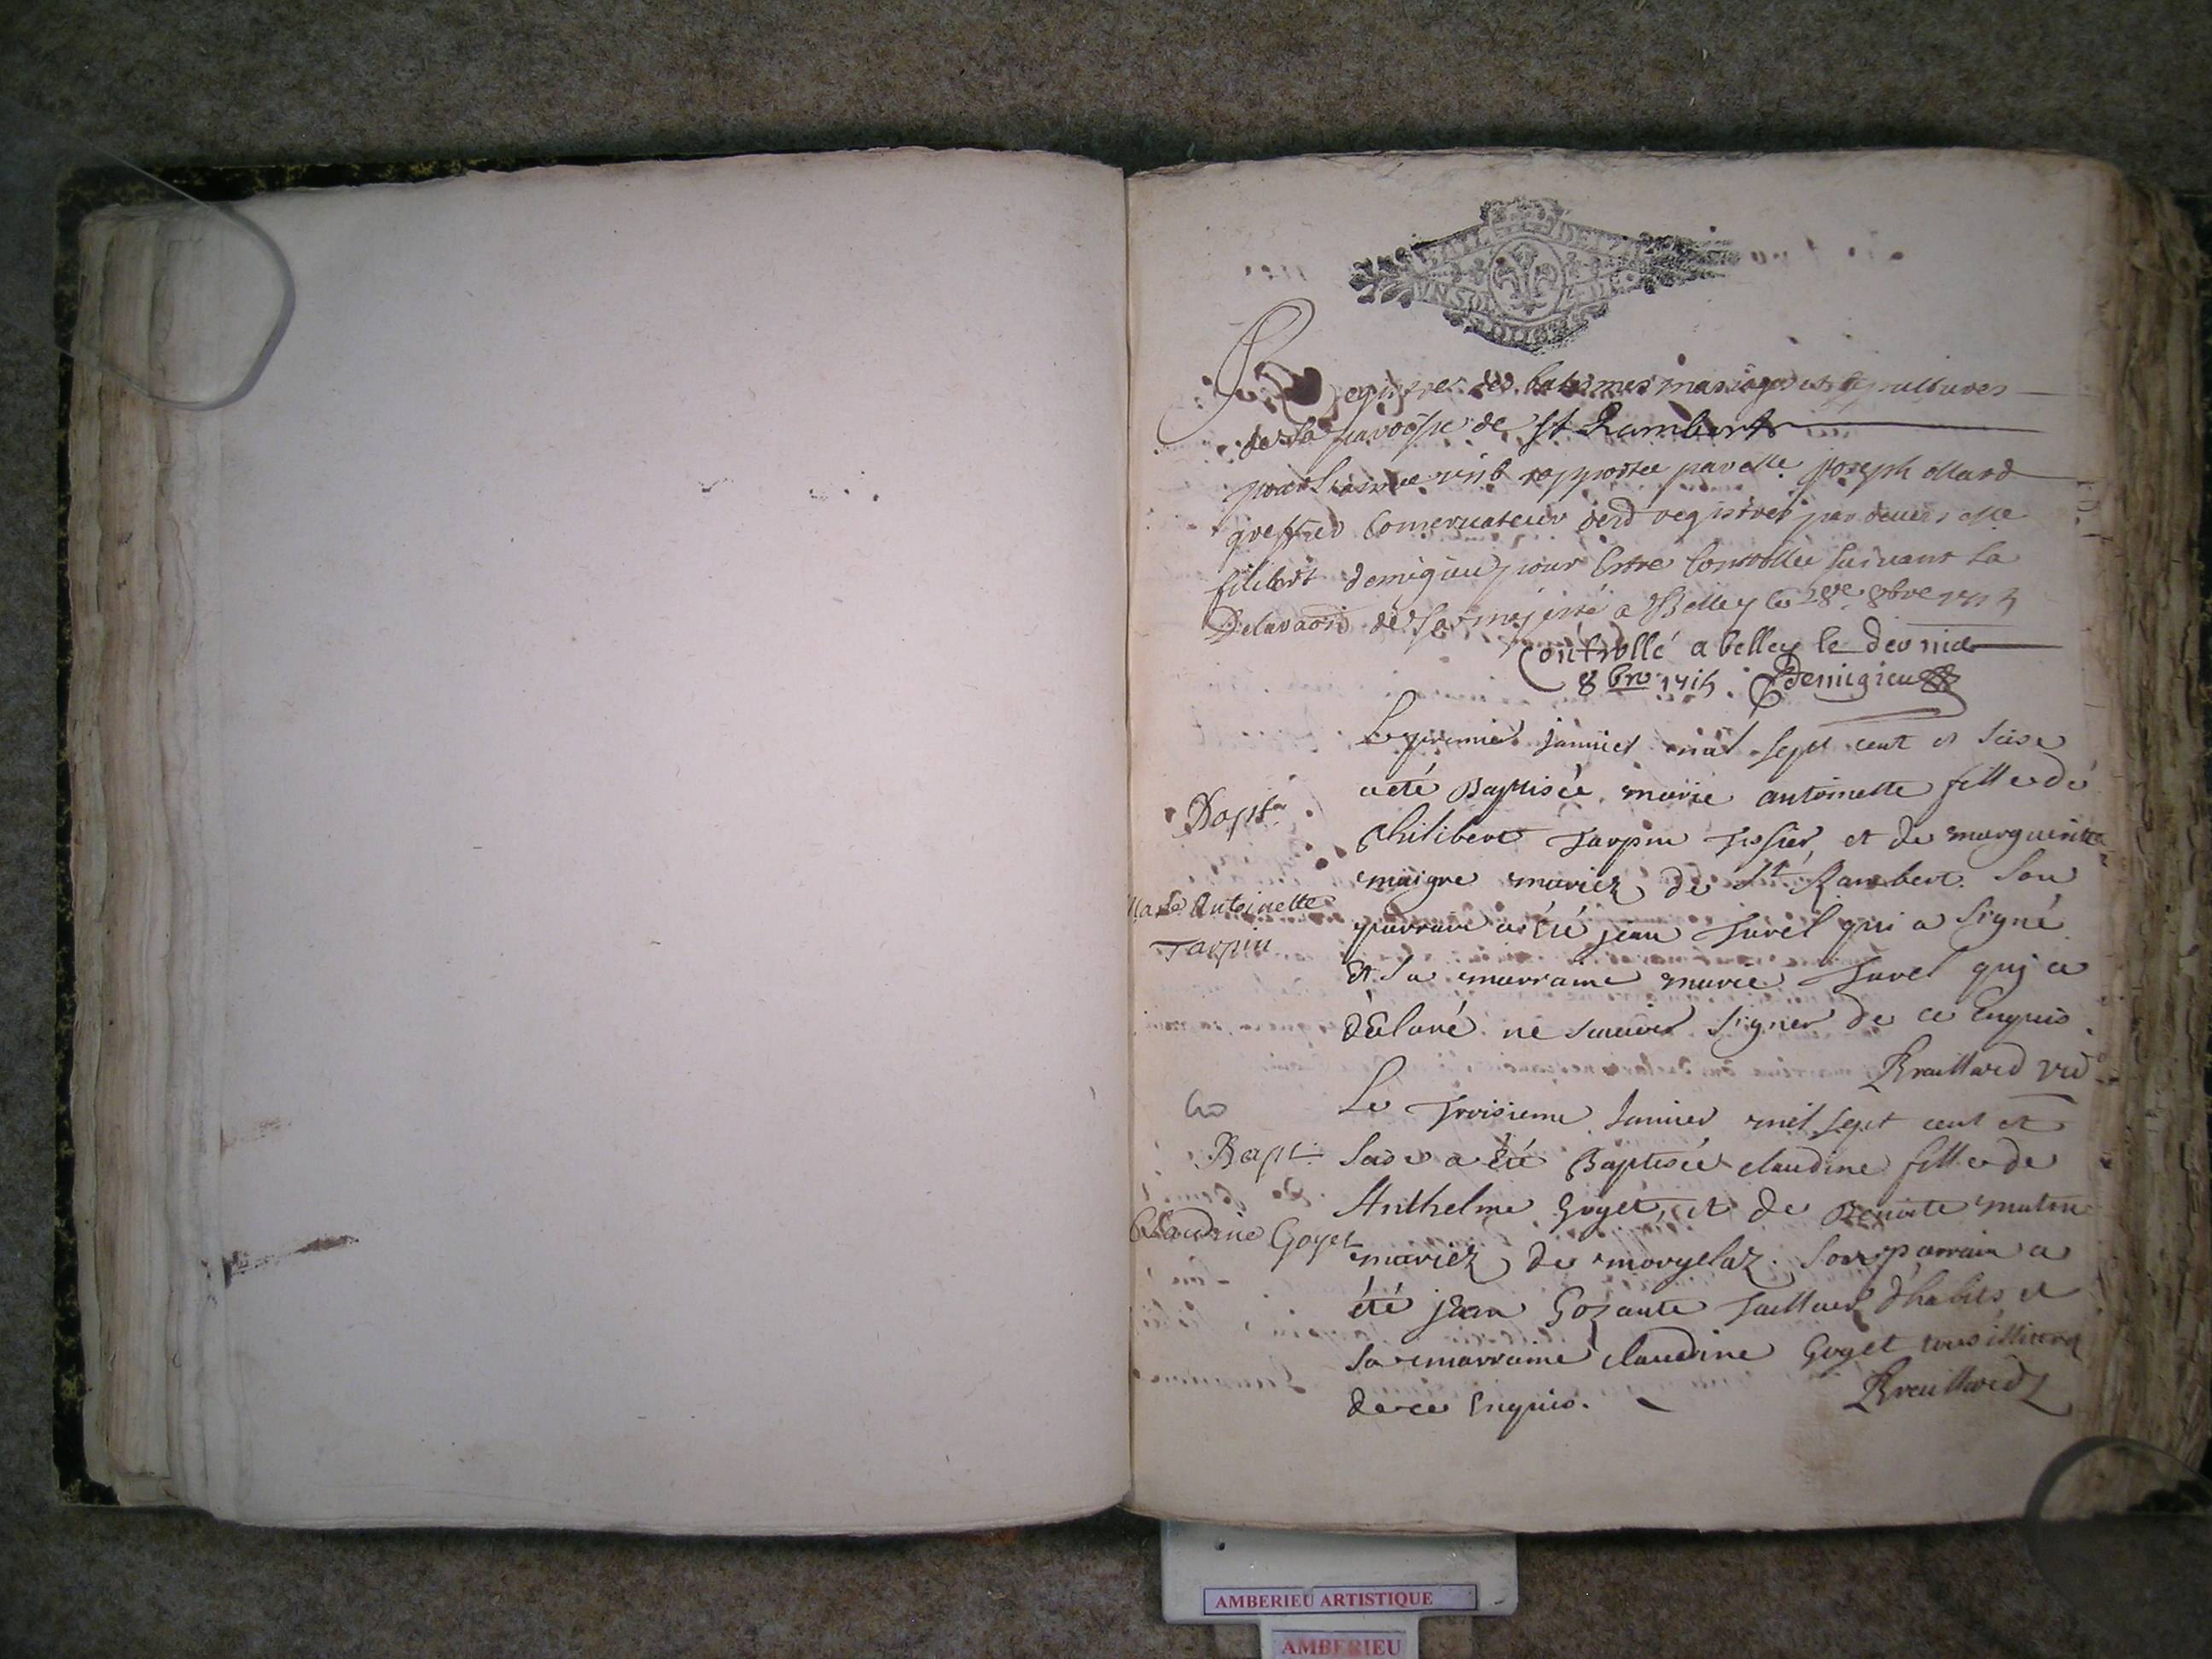 UN SOL
Registre des batesmes mariages et sepultures
de la parroisse de St Rambert
pour l'année 1716 rapportée par Me Joseph
greffier Conservateur desd registres par devers
filibert demigieu pour Estre Controllée suivant la
Delaraon de Sa majesté a Belley le 28e 8bre 1715
Controllé a belley le dernier
8bre 1715. Demigieu
Le premier janvier mil sept cent et seise
Bapt.
a eté Baptisée marie antoinette fille de
philibert Tarpin Tissier, et de marguerite
maigre mariez de St Rambert. Son
Marie Antoinette
Tarpin
parrain a été jean Juvel qui a signé
et sa marraine marie Juvel qui a
déclaré ne scavoir signer de ce Enquis
Brouillard vic
Le Troisieme Janvier mil sept cent et
Bapt.
seise a été Baptisée claudine fille de
Anthelme Goyet, et de Benoite
Claudine Goyet
mariez de morgelaz. Son parrain a
été jean Gojante Tailleur d'habits et
sa marraine claudine Goyet tous illiterez
de ce Enquis.
Brouillard
AMBERIEU ARTISTIQUE
AMBERIEU